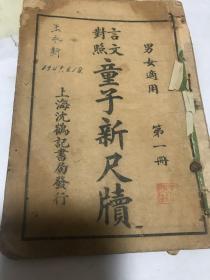 男女適用
第一冊
言文
對照
童子新尺牘
上海沈鶴記書局發行
王永新